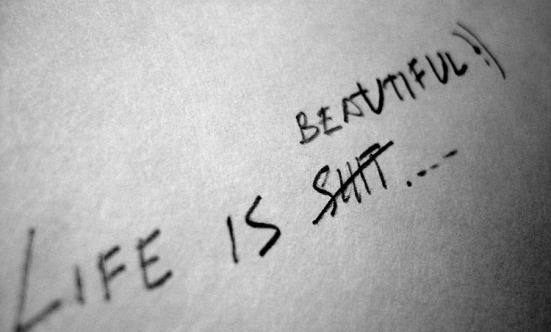 BEAUTIFUL!!
LIFE IS SHIT....--